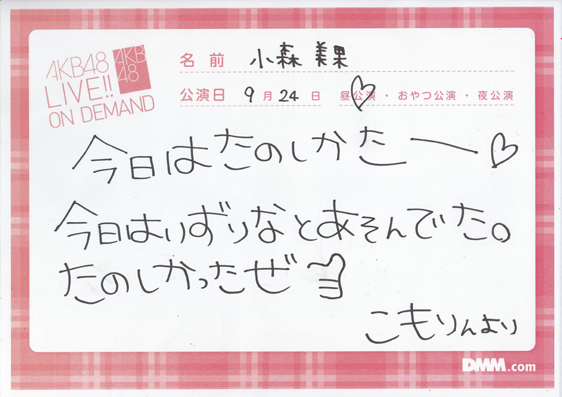 AKB48
LIVE!!
ON DEMAND
AKB
48
名前 小森美果
公演日 9月24日 昼公演・おやつ公演・夜公演
今日はたのしかたー♡
今日はいずりなとあそんでた。
たのしかったぜ
こもりんより
DMM.com